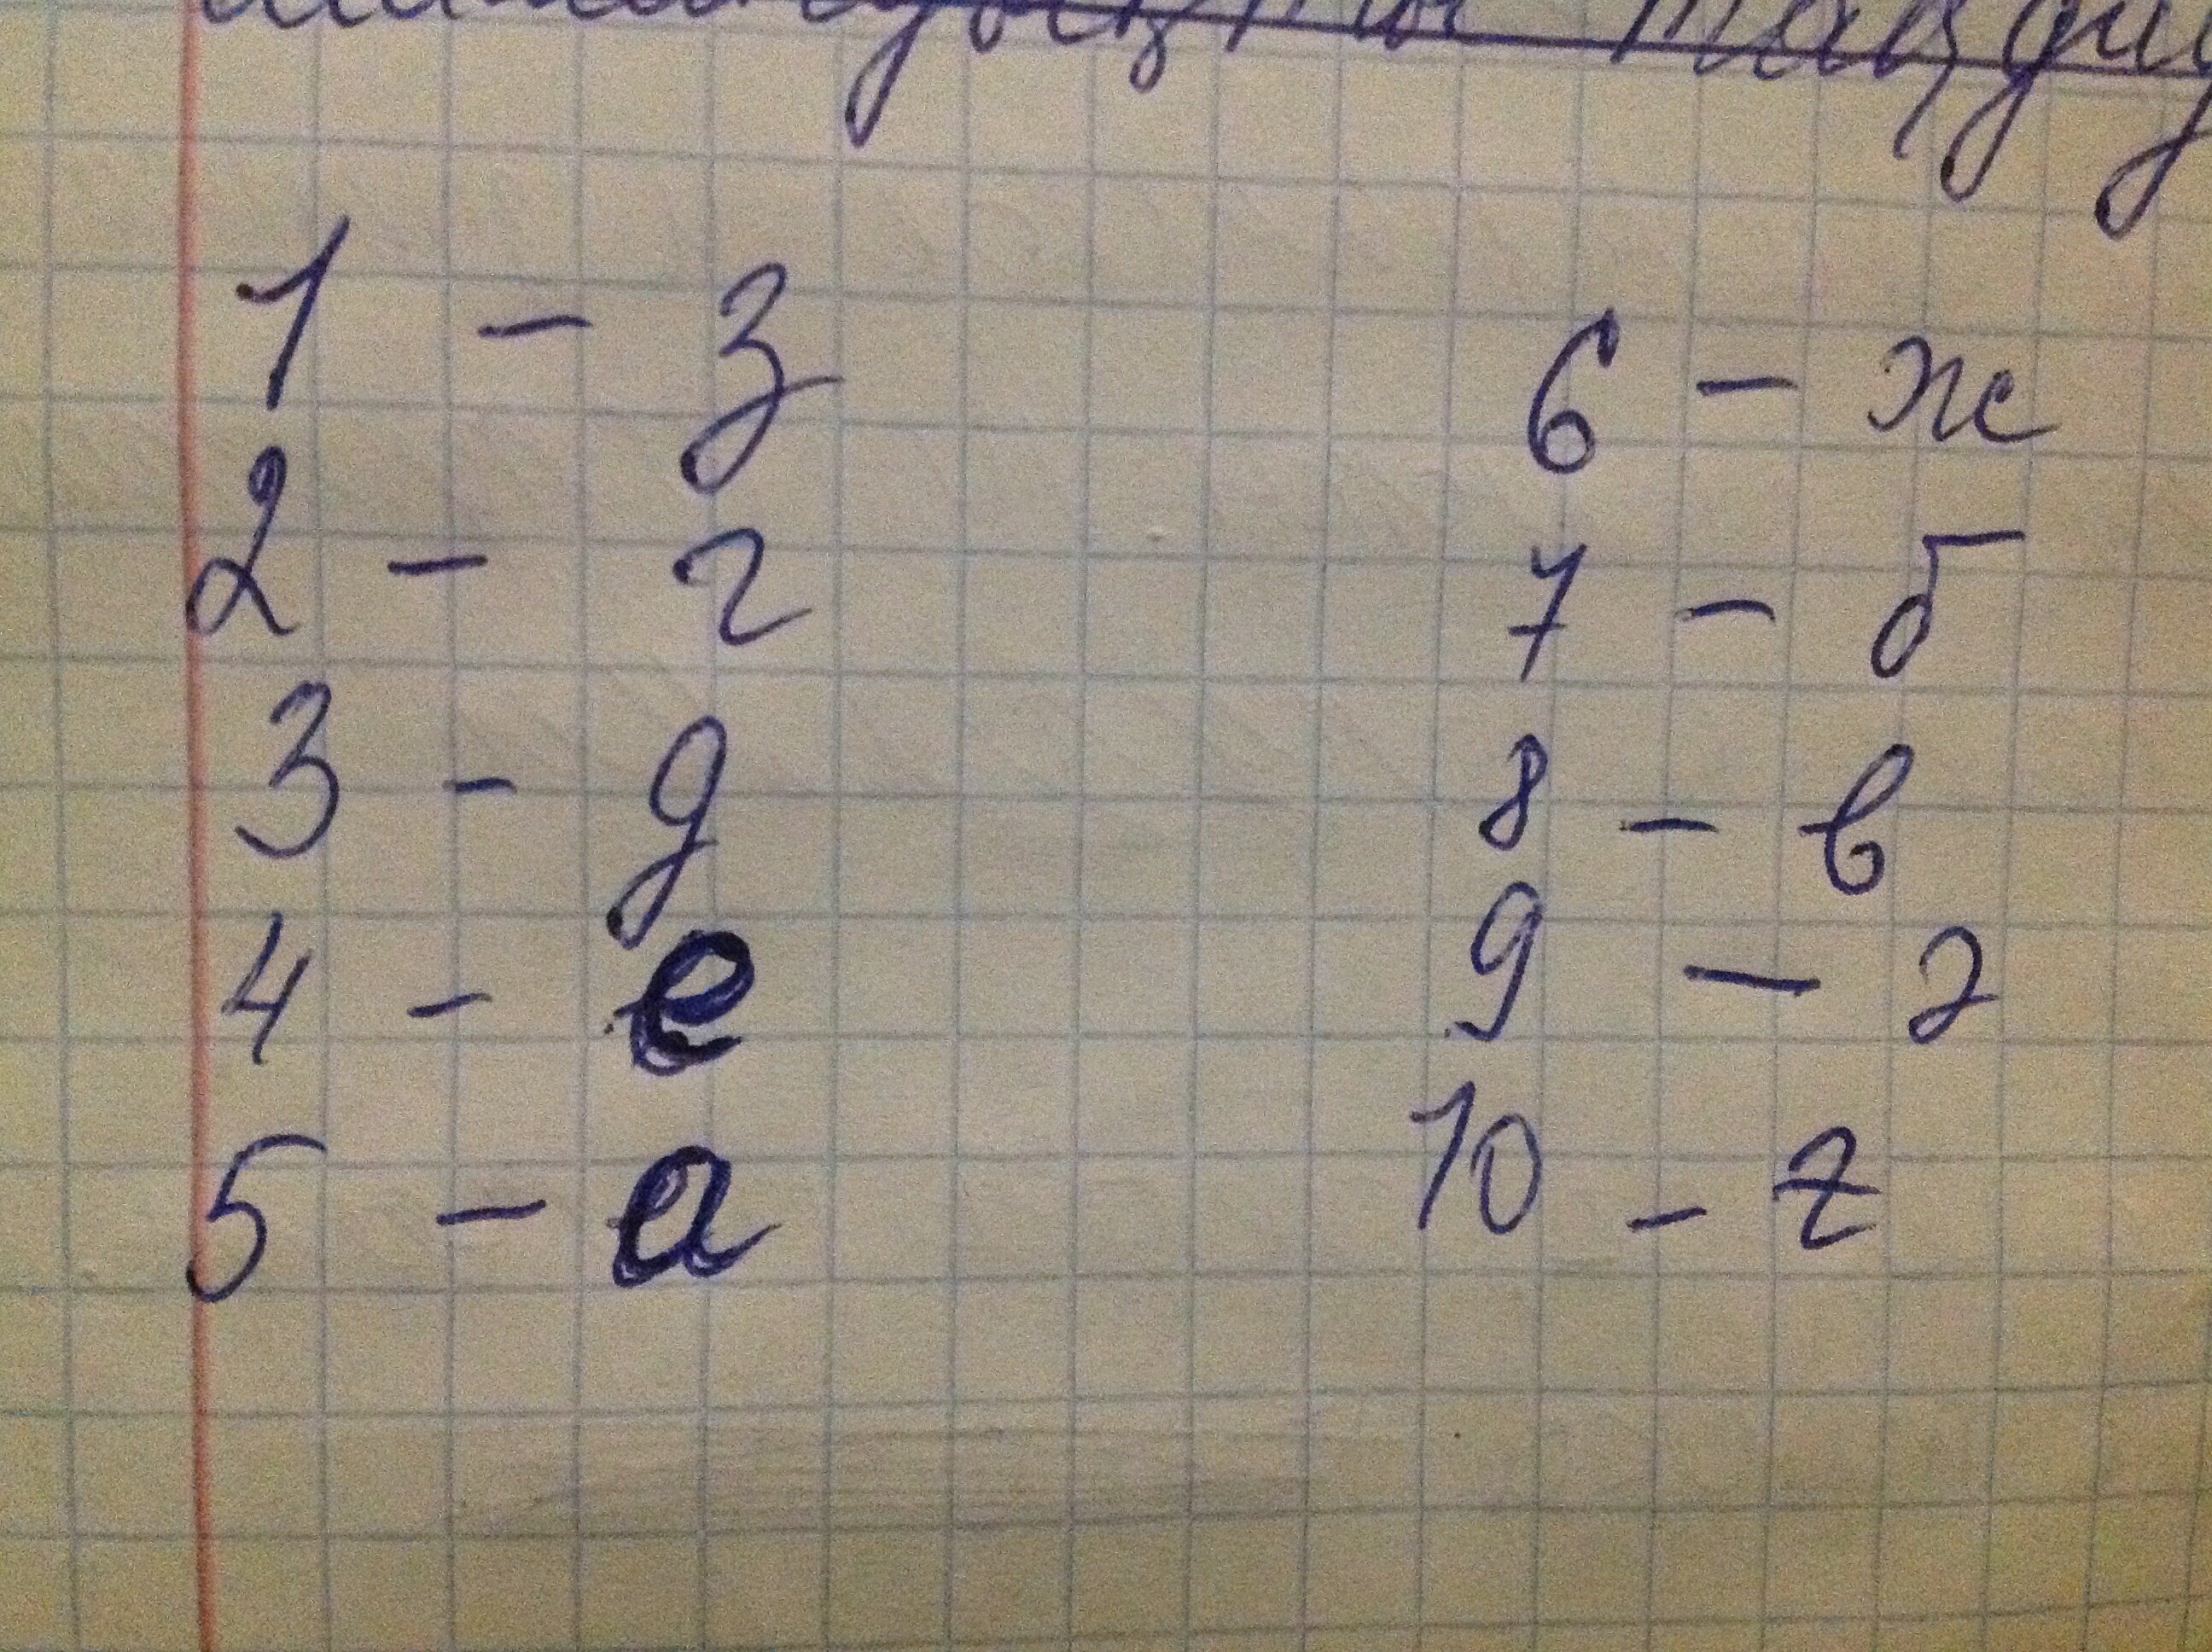 1 – з
2 – г
3 – д
4 – е
5 – а
6 – ж
7 – б
8 – в
9 – ә
10 – ғ